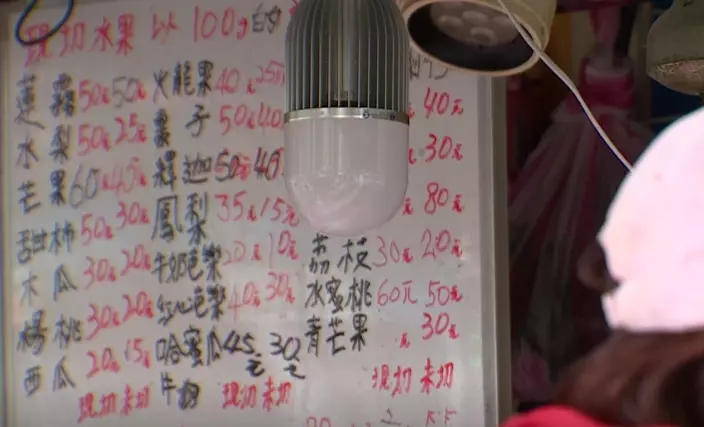 現切水果 以 100g
蓮霧 50元 50元 火龍果 40元 25元
水梨 50元 25元 棗子 50元 40 40元
芒果 60元 45元 釋迦 50元 45 30元
甜柿 50元 30元 鳳梨 35元 15元 80元
木瓜 30元 20元 牛奶芭樂 20元 10元 荔枝 30元 20元
楊桃 30元 20元 紅心芭樂 40元 30元 水蜜桃 60元 50元
西瓜 20元 15元 哈蜜瓜 45元 30元 青芒果 元 30元
現切 未切 現切 未切 現切 未切